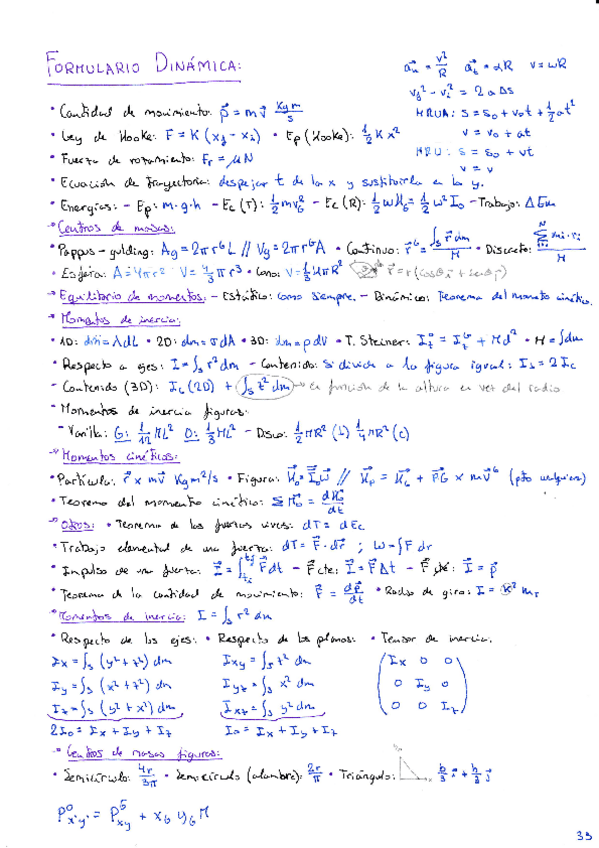 FORMULARIO DINÁMICA:
a⃗n = v²/R a⃗t = αR v = ωR
vf² - vi² = 2aΔs
• Cantidad de movimiento: p⃗ = m v⃗ Kg m/s
MRUA: s = s₀ + v₀t + ½at²
• Ley de Hooke: F = K (xf - xi) • Ep (Hooke): ½ K x²
v = v₀ + at
• Fuerza de rozamiento: Fr = μN
MRU: s = s₀ + vt
v = v
• Ecuación de trayectoria: despejar t de la x y sustituirla en la y.
• Energías: - Ep: m·g·h - Ec (T): ½ m vG² - Ec (R): ½ ω H₀ = ½ ω² I₀ - Trabajo: Δ Em
→ Centros de masas:
• Pappus - gulding: Ag = 2π rᴳ L // Vg = 2π rᴳ A • Continuo: r⃗ᴳ = ∫s r⃗ dm / M • Discreto: Σ mi·ri / M
• Esfera: A = 4πr² V = 4/3 π r³ • Cono: V = 1/3 HπR² r⃗ = r (cosθ i + senθ j)
→ Equilibrio de momentos: - Estático: como siempre. - Dinámico: Teorema del momento cinético.
→ Momentos de inercia:
• 1D: dm = λdL • 2D: dm = σdA • 3D: dm = ρdV • T. Steiner: I = I + Md² • M = ∫dm
• Respecto a ejes: I = ∫s r² dm - Contenido: si divide a la figura igual: Is = 2 Ic
- Contenido (3D): Ic (2D) + ∫s z² dm → en función de la altura en vez del radio
- Momentos de inercia figuras:
- Varilla: G: 1/12 ML² O: 1/3 ML² - Disco: ½ MR² (⊥) ¼ MR² (c)
→ Momentos cinéticos:
• Partícula: r⃗ x m v⃗ Kg m²/s • Figura: H⃗₀ = I₀ω⃗ // H⃗p = H⃗G + PG⃗ x m v⃗ᴳ (pto cualquiera)
• Teorema del momento cinético: Σ M⃗₀ = dH⃗₀/dt
→ Otros: • Teorema de las fuerzas vivas: dT = dEc
• Trabajo elemental de una fuerza: dT = F⃗·dr⃗ ; W = ∫F dr
• Impulso de una fuerza: I⃗ = ∫ F⃗dt - F⃗ cte: I⃗ = F⃗Δt - F⃗ cte: I⃗ = p⃗
• Teorema de la cantidad de movimiento: F⃗ = dp⃗/dt • Radio de giro: I = K² mT
→ Momentos de inercia: I = ∫s r² dm
• Respecto de los ejes: • Respecto de los planos: • Tensor de inercia:
Ix = ∫s (y² + z²) dm Ixy = ∫s z² dm ( Ix 0 0
Iy = ∫s (x² + z²) dm Iyz = ∫s x² dm 0 Iy 0
Iz = ∫s (y² + x²) dm Ixz = ∫s y² dm 0 0 Iz )
2I₀ = Ix + Iy + Iz I₀ = Ix + Iy + Iz
→ Centros de masas figuras:
• Semicírculo: 4r/3π • Semicírculo (alambre): 2r/π • Triángulo: b/3 i⃗ + h/3 j⃗
P⁰x'y' = Pᴳxy + xG yG M
33